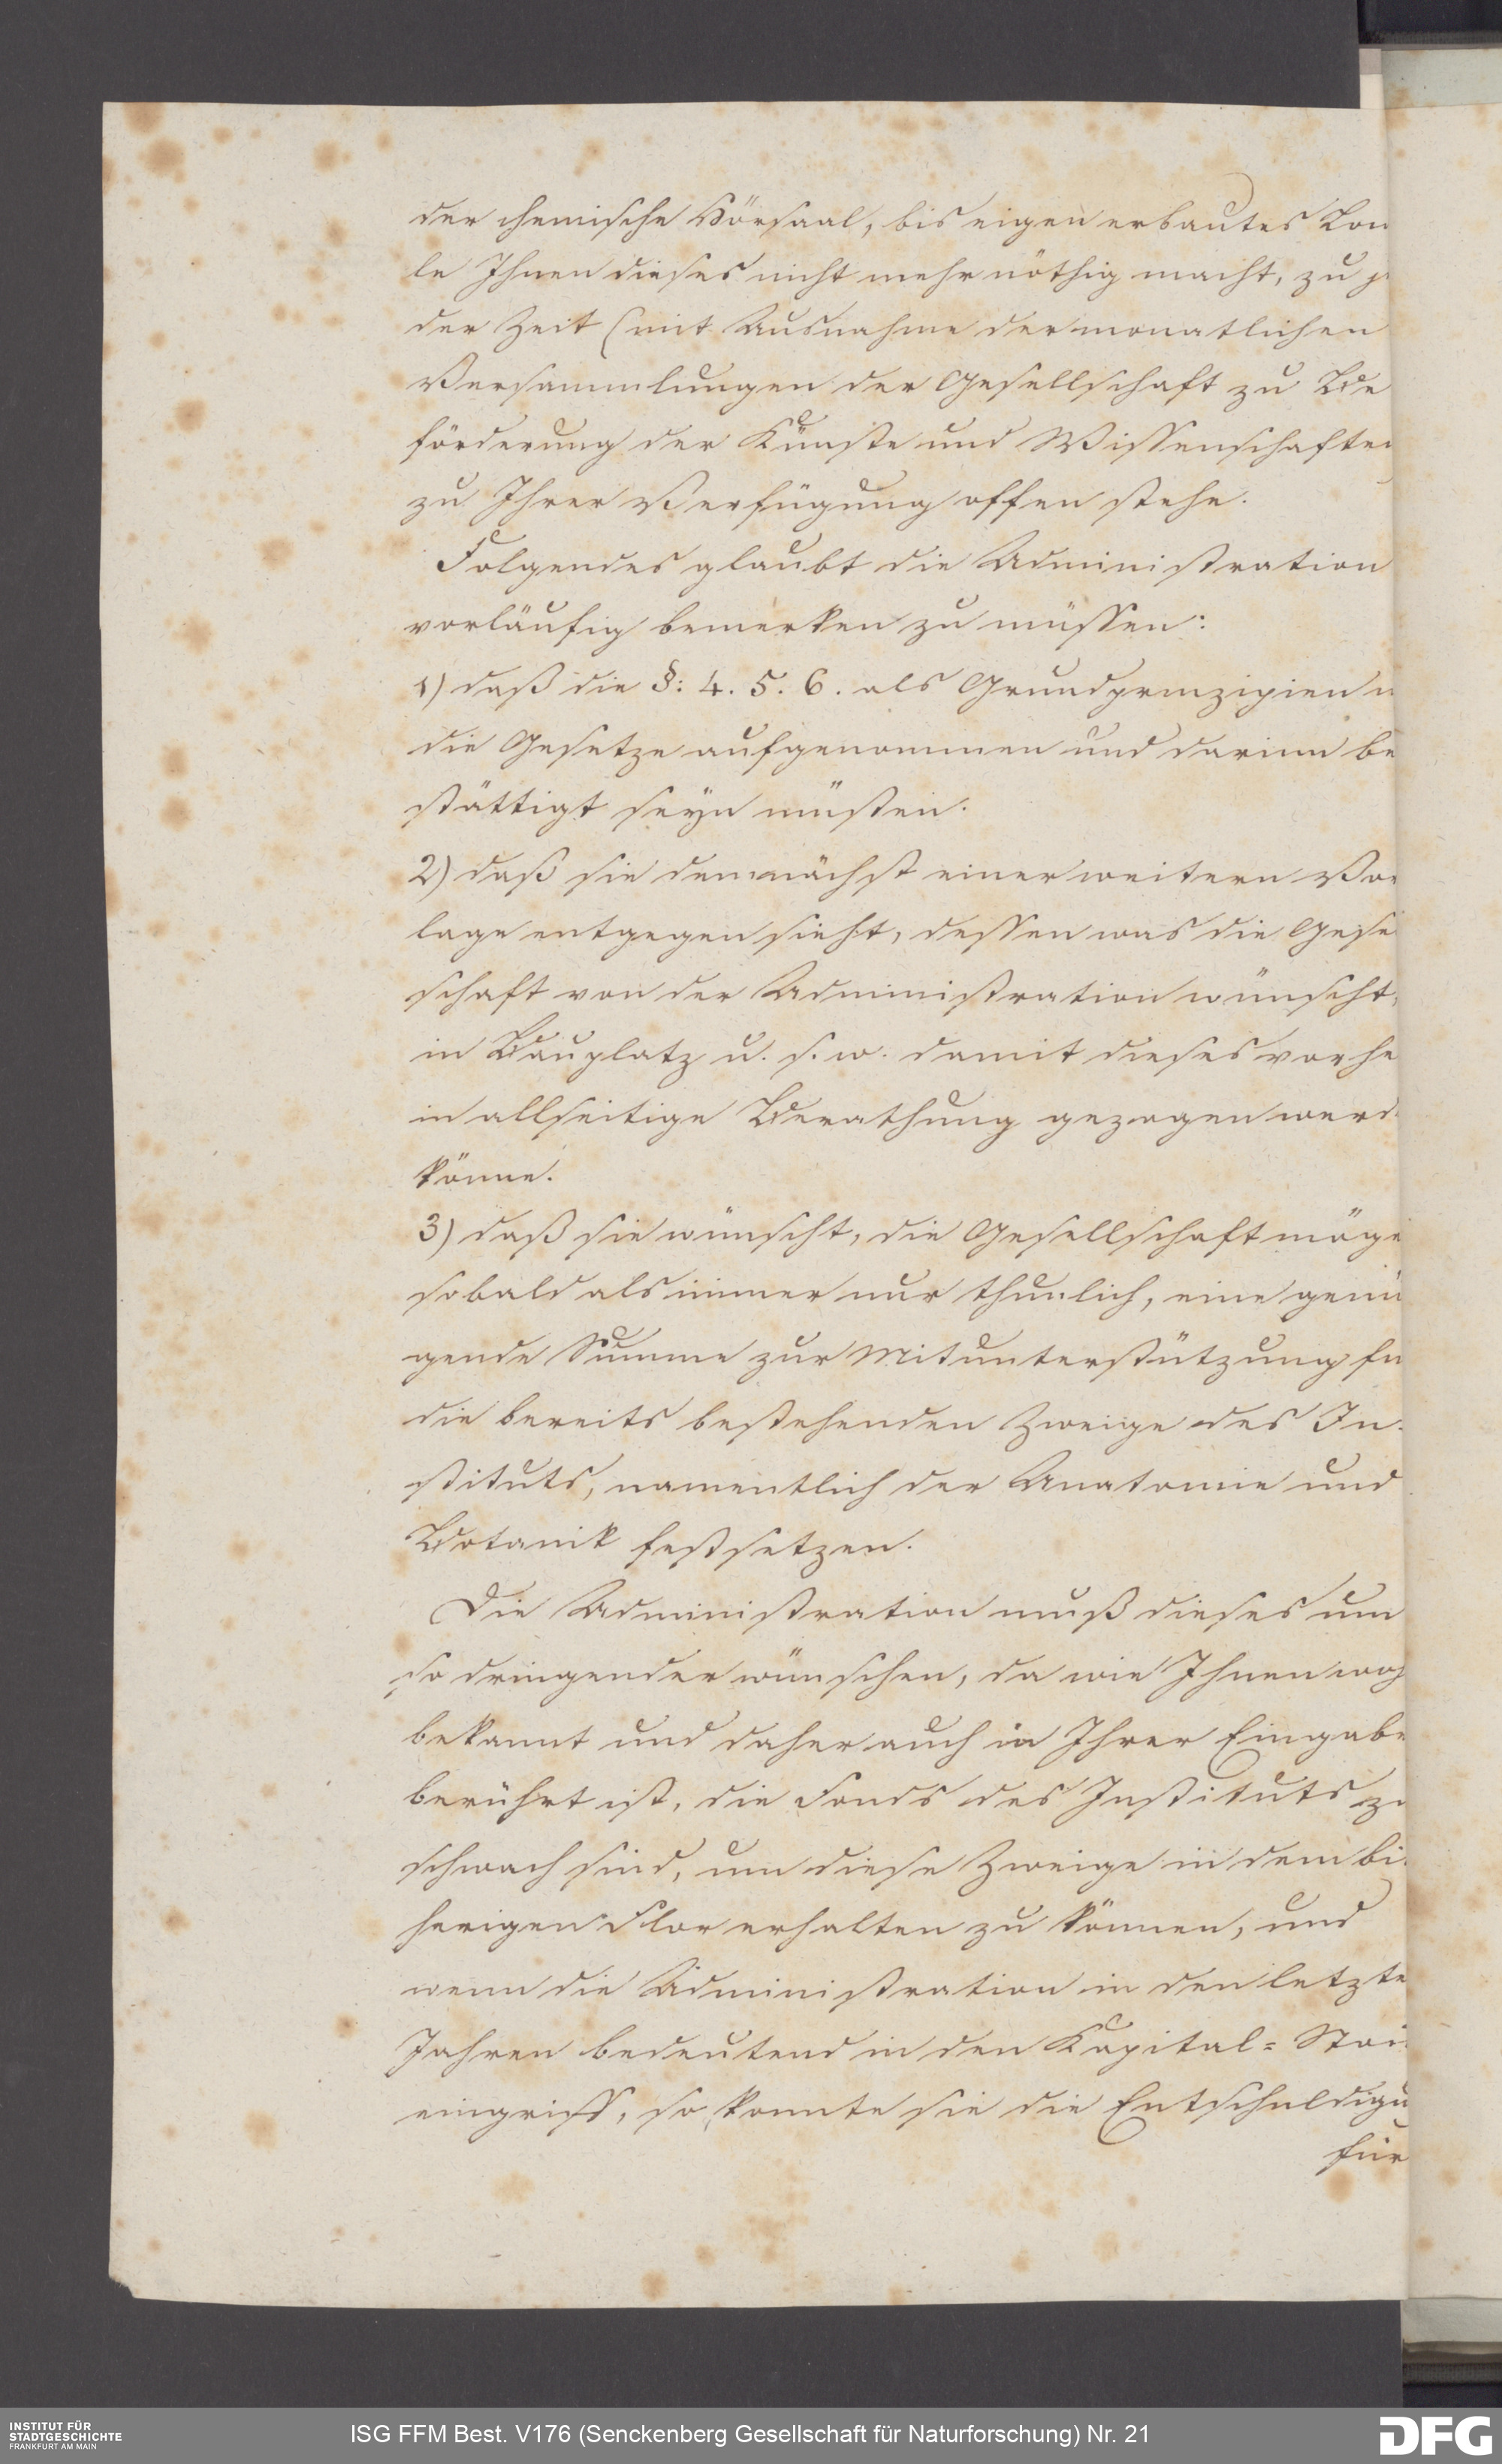 der chemische Hörsaal, bis eigen erbautes Lou
le Ihnen dieses nicht mehr nöthig macht, zu je
der Zeit (mit Ausnahme der monatlichen
Versammlungen der Gesellschaft zu Be
förderung der Künste und Wissenschaften
zu Ihrer Verfügung offen stehe.
Folgendes glaubt die Administration
vorläufig bemerken zu müssen:
1) daß die §: 4. 5. 6. als Grundprinzipien in
die Gesetze aufgenommen und darinn be
stättigt seyn müßten.
2) daß sie demnächst einer weitern Vor
lage entgegen sieht, dessen was die Gese
schaft von der Administration wünscht,
in Bauplatz u. s. w. damit dieses vorhe
in allseitige Berathung gezogen werd
könne.
3) daß sie wünscht, die Gesellschaft möge
sobald als immer nur thunlich, eine genü
gende Summe zur Mitunterstützung für
die bereits bestehenden Zweige des In-
stituts, namentlich der Anatomie und
Botanik festsetzen.
Die Administration muß dieses um
so dringender wünschen, da wie Ihnen woh
bekannt und daher auch in Ihrer Eingabe
berührt ist, die Fonds des Instituts zu
schwach sind, um diese Zweige in dem bis
herigen Flor erhalten zu können, und
wenn die Administration in den letzte
Jahren bedeutend in den Kapital-Stoc
eingriff, so konnte sie die Entschuldigu
für
INSTITUT FÜR
STADTGESCHICHTE
FRANKFURT AM MAIN
ISG FFM Best. V176 (Senckenberg Gesellschaft für Naturforschung) Nr. 21
DFG